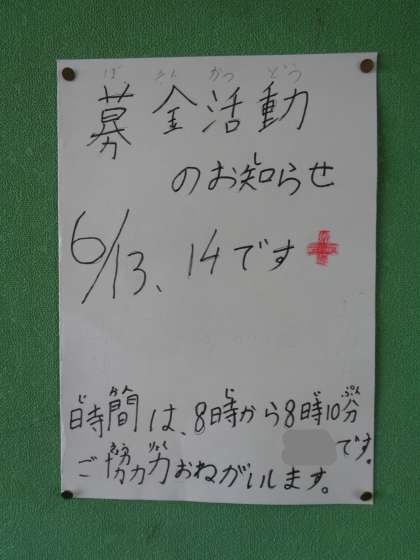 ぼ きん かつ どう
募金活動
のお知らせ
6/13、14です
じ かん じ じ ぷん
時間は、8時から8時10分
です。
きょう りょく
ご協力おねがいします。